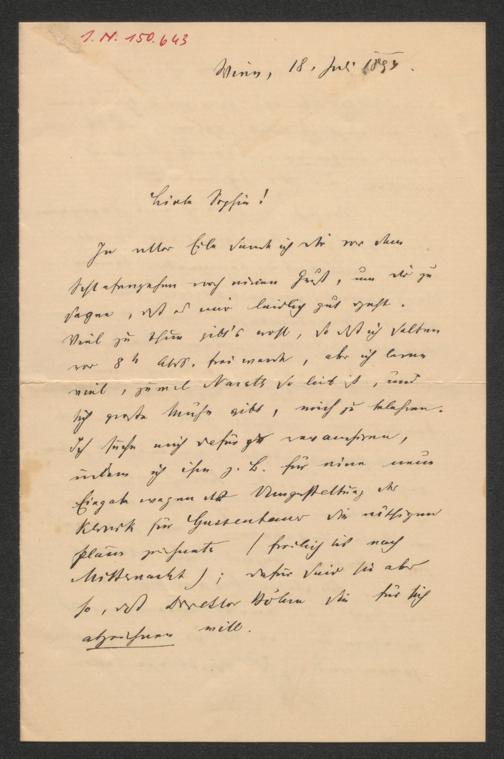 I. N. 150.643
Wien, 18. Juli 1894.
Liebe Sophie!
In aller Eile sende ich dir vor dem
Schlafengehen noch einen Gruß, um dir zu
sagen, daß es mir leidlich gut geht.
Viel zu thun gibt's wohl, so daß ich selten
vor 8 h Abds. frei werde, aber ich lerne
viel, zumal so lieb ist, und
sich große Mühe gibt, mich zu belehren.
Ich suche mich dafür zu revanchiren,
indem ich ihm z. B. für eine neue
Eingabe wegen der Umgestaltung der
Klinik für die nöthigen
Pläne zeichnete (freilich bis nach
Mitternacht); dafür sind sie aber
so, daß Director Böhm sie für sich
abzeichnen will.